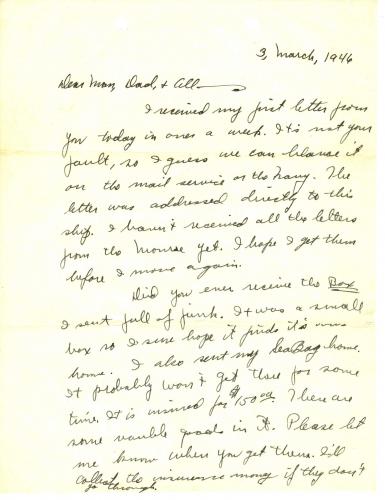 3, March, 1946
Dear Mom, Dad, & All
I received my first letter from
you today in over a week. It's not your
fault, so I guess we can blame it
on the mail service or the Navy. The
letter was addressed directly to this
ship. I haven't received all the letters
from the Monroe yet. I hope I get them
before I move again.
Did you ever receive the Box
I sent full of junk. It was a small
box so I sure hope it finds it's own
home. I also sent my SeaBag home.
It probably won't get there for some
time. It is insured for $150.00. There are
some valuble goods in it. Please let
me know when you get them. I'll
collect the insurance money if they don't
go through.